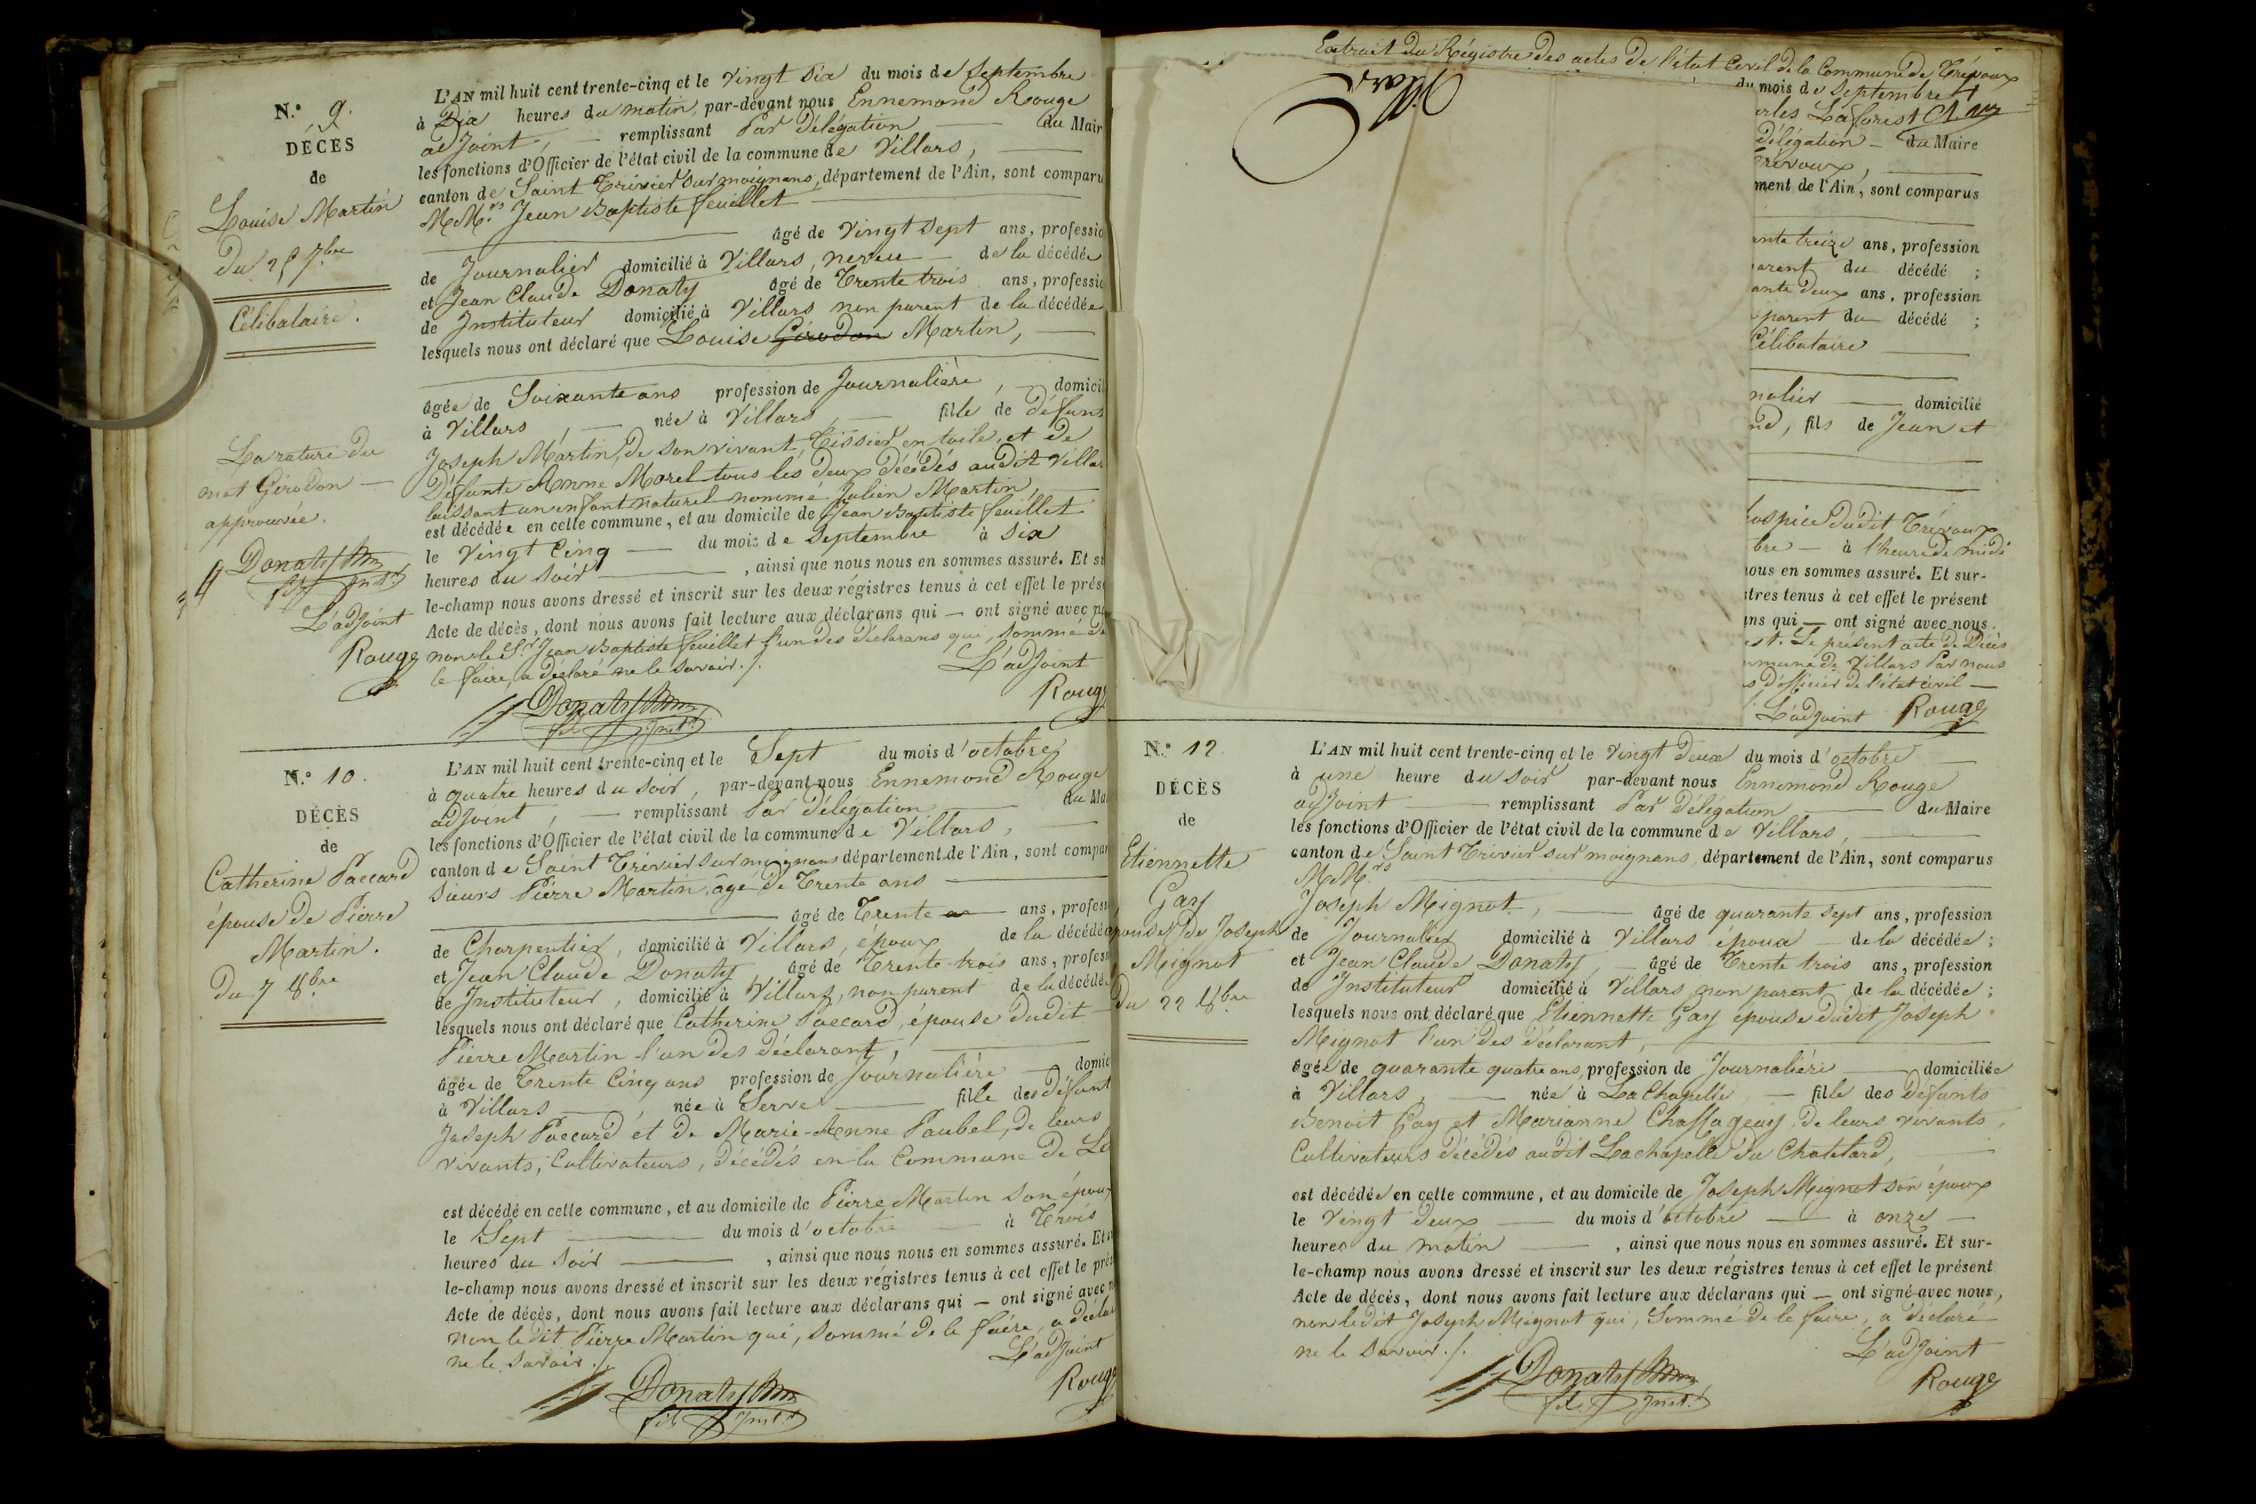 N.° 9.
DÉCÈS
de
Louise Martin
du 25 7.bre
Célibataire.
La rature du
mot Girodon —
approuvée.
Donaty
fils Inst.r
L'adjoint
Rouge
L'AN mil huit cent trente-cinq et le vingt six du mois de Septembre
à Dix heures du matin, par-devant nous Ennemond Rouge
adjoint, — remplissant Par délégation — du Mair
les fonctions d'Officier de l'état civil de la commune de Villars, —
canton de Saint Trivier sur moignans, département de l'Ain, sont comparu
M.M.rs Jean Baptiste feuillet —
— âgé de vingt sept ans, professio
de Journalier domicilié à Villars, neveu — de la décédée
et Jean Claude Donaty âgé de Trente trois ans, professio
de Instituteur domicilié à Villars non parent de la décédée
lesquels nous ont déclaré que Louise Girodon Martin, —
âgée de Soixante ans profession de Journalière, — domicil
à Villars, — née à Villars, — fille de défunt
Joseph Martin, de son vivant, Tissier en toile, et de
Défunte Anne Morel tous les deux décédés audit Villar
laissant un enfant naturel nommé Julien Martin, —
est décédée en cette commune, et au domicile de Jean Baptiste feuillet
le vingt Cinq — du mois de Septembre à Six
heures du Soir —, ainsi que nous nous en sommes assuré. Et su
le-champ nous avons dressé et inscrit sur les deux régistres tenus à cet effet le prése
Acte de décès, dont nous avons fait lecture aux déclarans qui — ont signé avec n
non le S.r Jean Baptiste feuillet l'un des déclarans qui, sommé de
le faire, a déclaré ne le savoir ./.
L'adjoint
Donaty
fils Inst.r
Rouge
N.° 10.
DÉCÈS
de
Catherine Paccard
épouse de Pierre
Martin.
du 7 8.bre
L'AN mil huit cent trente-cinq et le Sept du mois d'octobre
à quatre heures du Soir, par-devant nous Ennemond Rouge
adjoint, — remplissant Par délégation — du Mai
les fonctions d'Officier de l'état civil de la commune de Villars, —
canton de Saint Trivier sur moignans département de l'Ain, sont compar
Sieurs Pierre Martin, âgé de Trente ans —
— âgé de Trente — ans, profess
de Charpentier, domicilié à Villars, époux de la décédée
et Jean Claude Donaty, âgé de Trente-trois ans, profess
de Instituteur, domicilié à Villars, non parent de la décédée
lesquels nous ont déclaré que Catherine Paccard, épouse dudit
Pierre Martin l'un des déclarant, —
âgée de Trente Cinq ans profession de Journalière — domic
à Villars — née à Serve — fille des défunt
Joseph Paccard et de Marie-Anne Paubel, de leurs
vivants, Cultivateurs, décédés en la Commune de
est décédé en cette commune, et au domicile de Pierre Martin son époux
le Sept — du mois d'octobre — à Trois
heures du Soir —, ainsi que nous nous en sommes assuré. Et
le-champ nous avons dressé et inscrit sur les deux régistres tenus à cet effet le prés
Acte de décès, dont nous avons fait lecture aux déclarans qui — ont signé avec n
non le dit Pierre Martin qui, sommé de le faire, a décla
ne le savoir ./.
L'adjoint
Donaty
fils Inst.r
Rouge
Extrait du Régistre des actes de l'état Civil de la Commune de Trévoux
du mois de Septembre
rles Laforest
délégation — du Maire
Trévoux, —
ment de l'Ain, sont comparus
ante treize ans, profession
arent du décédé ;
ante deux ans, profession
parent du décédé ;
Célibataire —
nalier — domicilié
nd, fils de Jean et
hospice dudit Trévoux
bre — à l'heure de midi
nous en sommes assuré. Et sur-
tres tenus à cet effet le présent
ans qui — ont signé avec nous.
est. Le présent acte de Décès
mmune de Villars Par nous
s d'officier de l'état civil —
L'adjoint Rouge
N.° 12
DÉCÈS
de
Etiennette
Gay
épouse de Joseph
Mignot
du 22 8.bre
L'AN mil huit cent trente-cinq et le vingt deux du mois d'octobre —
à une heure du soir par-devant nous Ennemond Rouge
adjoint — remplissant Par délégation — du Maire
les fonctions d'Officier de l'état civil de la commune de Villars, —
canton de Saint Trivier sur moignans, département de l'Ain, sont comparus
M.M.rs —
Joseph Mignot, — âgé de quarante sept ans, profession
de Journalier domicilié à Villars époux — de la décédée ;
et Jean Claude Donaty, — âgé de Trente trois ans, profession
de Instituteur domicilié à Villars non parent de la décédée ;
lesquels nous ont déclaré que Etiennette Gay épouse dudit Joseph
Mignot l'un des déclarant, —
âgée de quarante quatre ans, profession de Journalière — domiciliée
à Villars, — née à La Chapelle, — fille des Défunts
Benoit Gay et Marianne Chassagény, de leurs vivants,
Cultivateurs décédés audit Lachapelle du Chatelard, —
est décédée en cette commune, et au domicile de Joseph Mignot son époux
le vingt deux — du mois d'octobre — à onze —
heures du matin —, ainsi que nous nous en sommes assuré. Et sur-
le-champ nous avons dressé et inscrit sur les deux régistres tenus à cet effet le présent
Acte de décès, dont nous avons fait lecture aux déclarans qui — ont signé avec nous,
non le dit Joseph Mignot qui, Sommé de le faire, a déclaré
ne le savoir ./.
L'adjoint
Donaty
fils Inst.r
Rouge